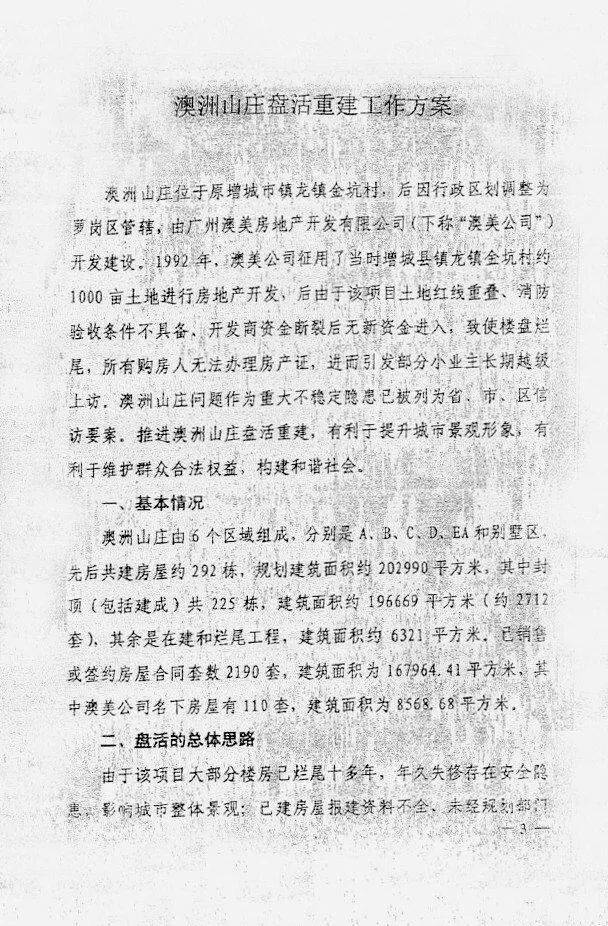 澳洲山庄盘活重建工作方案
澳洲山庄位于原增城市镇龙镇金坑村，后因行政区划调整为
萝岗区管辖，由广州澳美房地产开发有限公司（下称“澳美公司”）
开发建设。1992 年，澳美公司征用了当时增城县镇龙镇金坑村约
1000 亩土地进行房地产开发，后由于该项目土地红线重叠、消防
验收条件不具备、开发商资金断裂后无新资金进入，致使楼盘烂
尾，所有购房人无法办理房产证，进而引发部分小业主长期越级
上访。澳洲山庄问题作为重大不稳定隐患已被列为省、市、区信
访要案。推进澳洲山庄盘活重建，有利于提升城市景观形象，有
利于维护群众合法权益，构建和谐社会。
一、基本情况
澳洲山庄由 6 个区域组成，分别是 A、B、C、D、EA 和别墅区，
先后共建房屋约 292 栋，规划建筑面积约 202990 平方米，其中封
顶（包括建成）共 225 栋，建筑面积约 196669 平方米（约 2712
套），其余是在建和烂尾工程，建筑面积约 6321 平方米。已销售
或签约房屋合同套数 2190 套，建筑面积为 167964.41 平方米，其
中澳美公司名下房屋有 110 套，建筑面积为 8568.68 平方米。
二、盘活的总体思路
由于该项目大部分楼房已烂尾十多年，年久失修存在安全隐
患，影响城市整体景观；已建房屋报建资料不全、未经规划部门
— 3 —